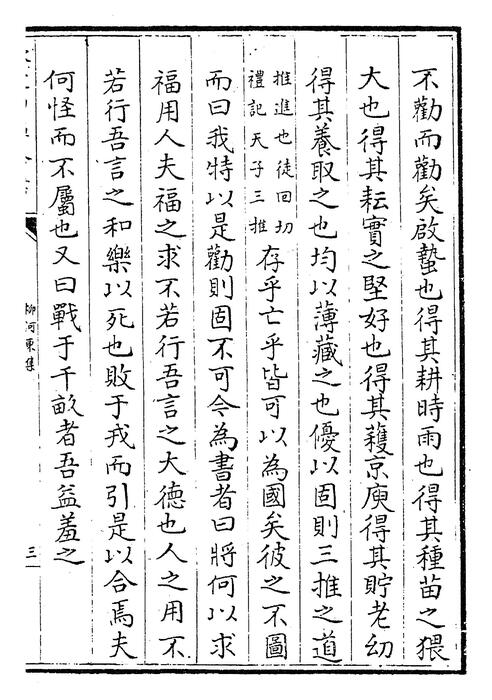 不勸而勸矣啟蟄也得其耕時雨也得其種苗之猥
大也得其耘實之堅好也得其穫京庾得其貯老幼
得其養取之也均以薄藏之也優以固則三推之道
推進也徒回切
禮記天子三推
存乎亡乎皆可以為國矣彼之不圖
而曰我特以是勸則固不可今為書者曰將何以求
福用人夫福之求不若行吾言之大德也人之用不
若行吾言之和樂以死也敗于戎而引是以合焉夫
何怪而不屬也又曰戰于千畝者吾益羞之
柳河東集
三